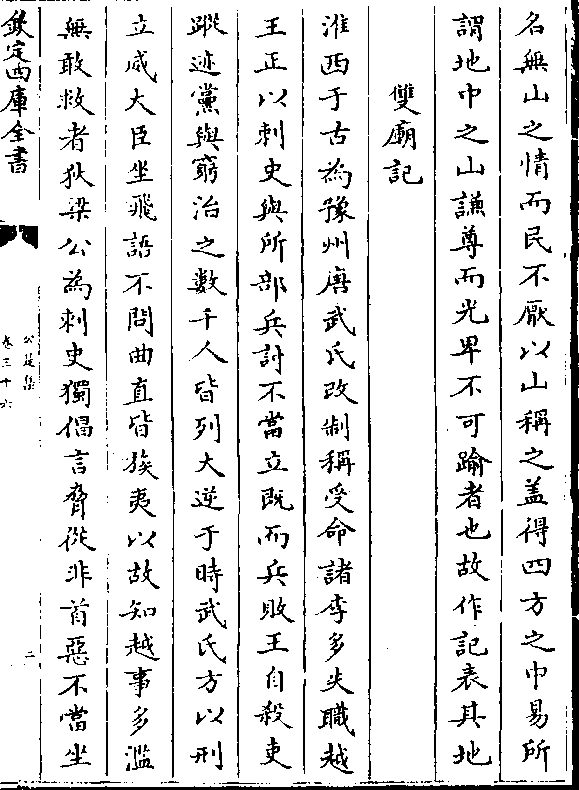 名無山之情而民不厭以山稱之盖得四方之中易所
謂地中之山謙尊而光卑不可踰者也故作記表其地
雙廟記
淮西于古為豫州唐武氏改制稱受命諸李多失職越
王正以刺史與所部兵討不當立既而兵敗王自殺吏
蹤迹黨與窮治之數千人皆列大逆于時武氏方以刑
立威大臣坐飛語不問曲直皆族夷以故知越事多濫
無敢救者狄梁公為刺史獨倡言脅從非首惡不當坐
欽定四庫全書
公是集
卷三十六
二